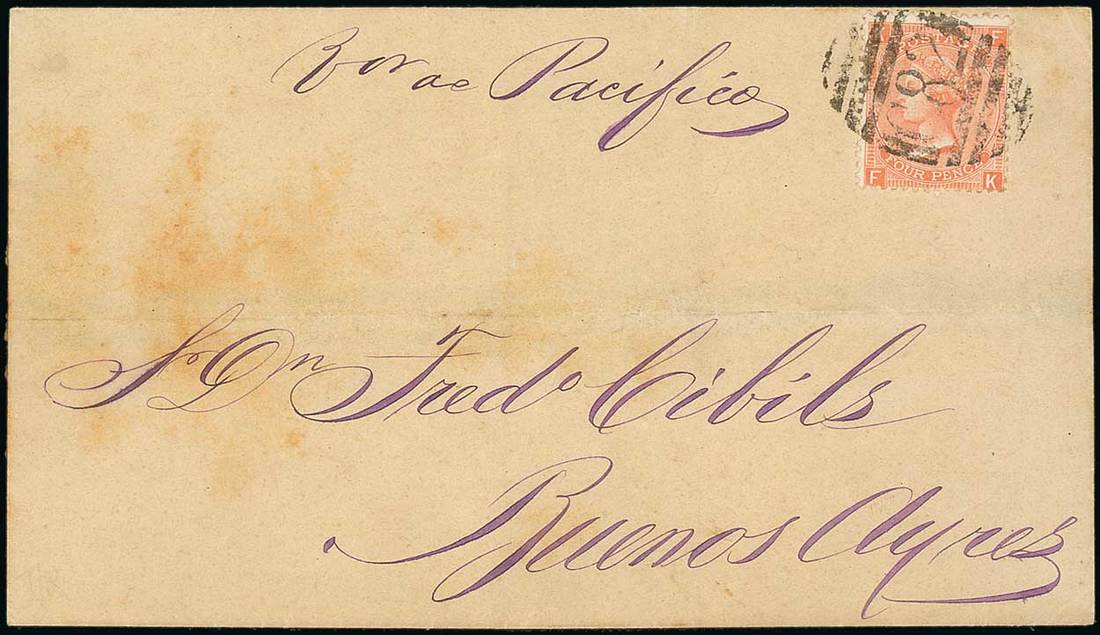 Vor ae Pacifico
POSTAGE
F
C87
FOUR PENCE
F K
Sr Dn Fredo Cibils
Buenos Ayres